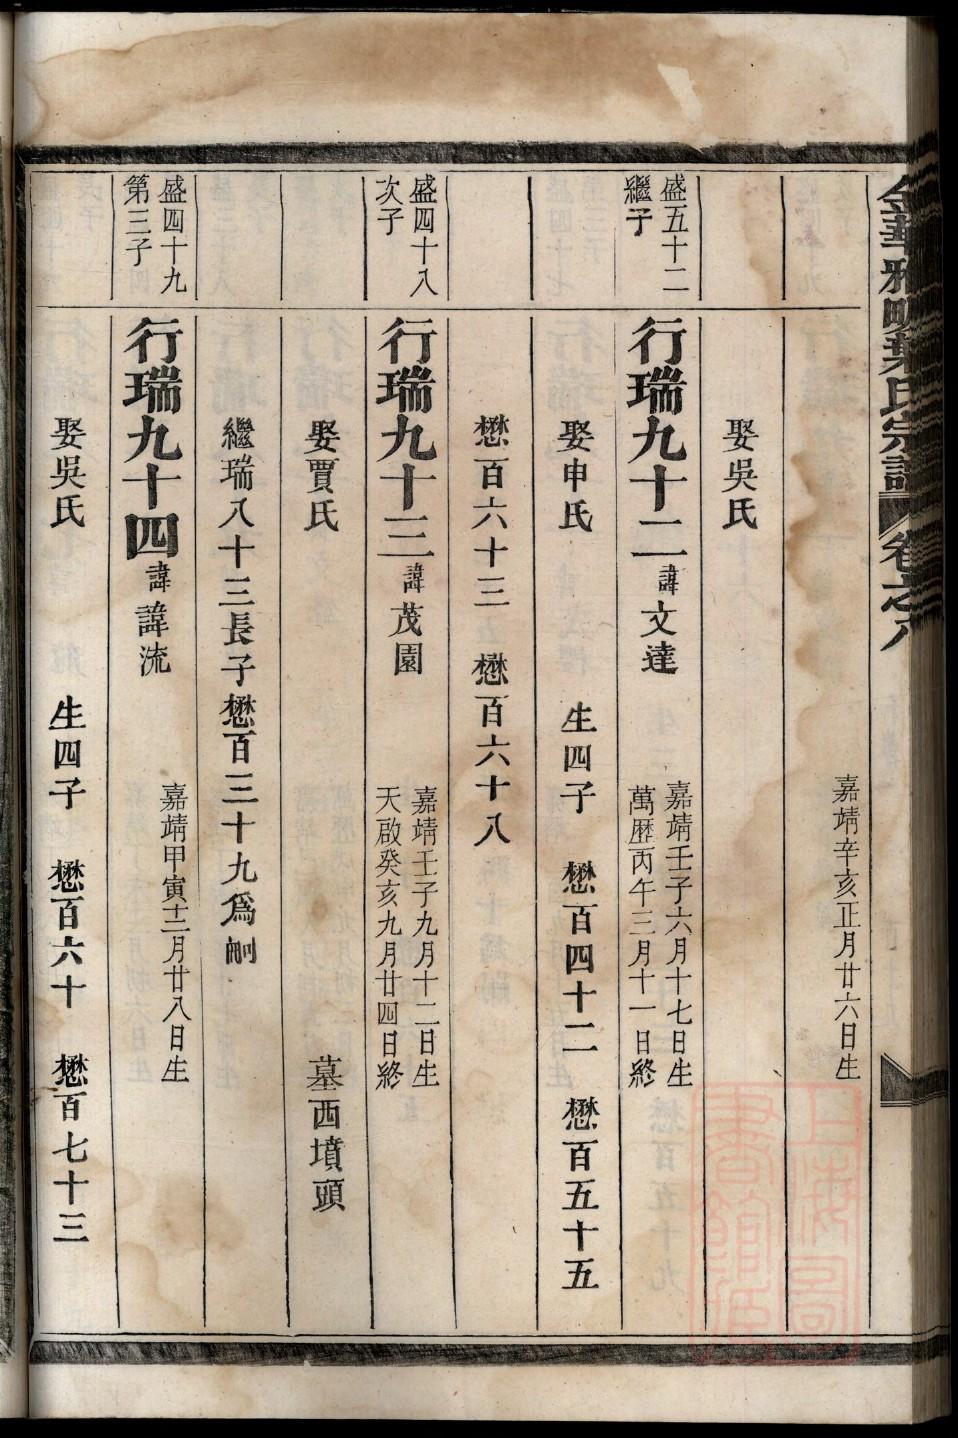 金華雅畈葉氏宗譜 卷之八
嘉靖辛亥正月廿六日生
娶吳氏
盛五十二
繼子
行瑞九十二 諱文達
嘉靖壬子六月十七日生
萬歷丙午三月十一日終
娶申氏 生四子 懋百四十二 懋百五十五
懋百六十三 懋百六十八
盛四十八
次子
行瑞九十三 諱茂園
嘉靖壬子九月十二日生
天啟癸亥九月廿四日終
娶賈氏 墓西墳頭
繼瑞八十三長子懋百三十九為嗣
盛四十九
第三子
行瑞九十四 諱諱流
嘉靖甲寅十二月廿八日生
娶吳氏 生四子 懋百六十 懋百七十三
上海圖書館藏